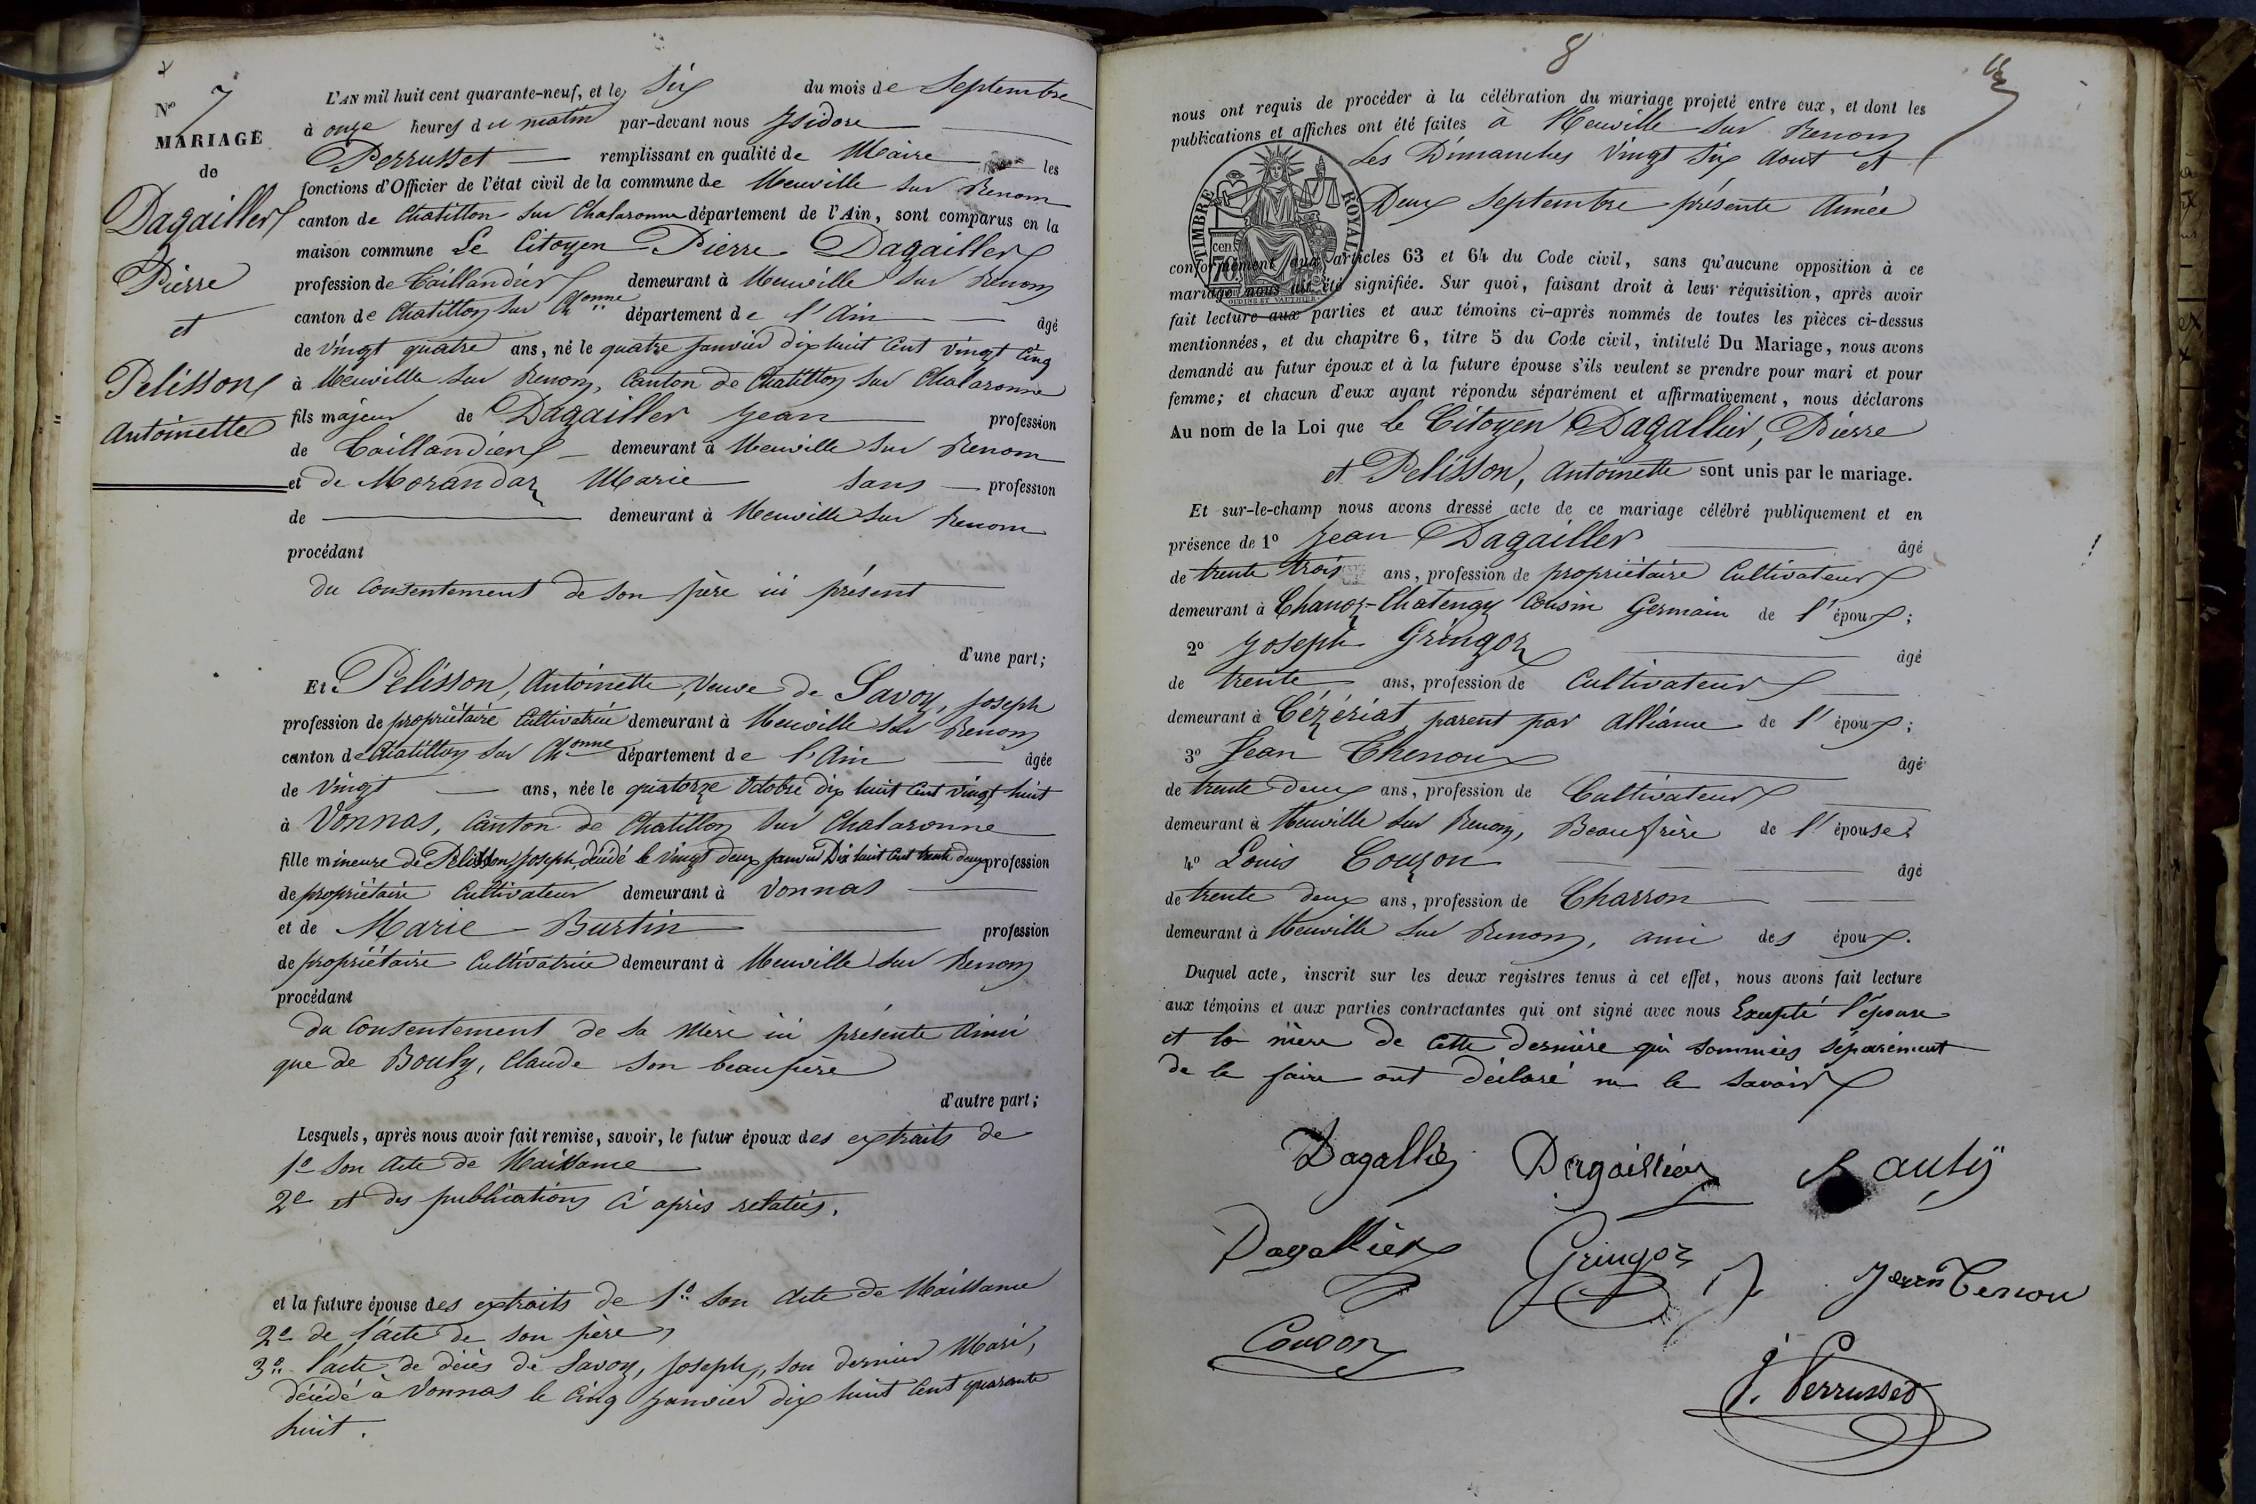 N° 7
MARIAGE
de
Dagailler
Pierre
et
Pelisson
Antoinette
L'AN mil huit cent quarante-neuf, et le six du mois de Septembre
à onze heures du matin par-devant nous Isidore
Perrusset remplissant en qualité de Maire les
fonctions d'Officier de l'état civil de la commune de Neuville sur Renom
canton de Chatillon sur Chalaronne département de l'Ain, sont comparus en la
maison commune Le Citoyen Pierre Dagailler
profession de Taillandier demeurant à Neuville sur Renom
canton de Chatillon sur Ch.onne département de l'Ain âgé
de vingt quatre ans, né le quatre Janvier dix huit cent vingt cinq
à Neuville sur Renom, Canton de Chatillon sur Chalaronne
fils majeur de Dagailler Jean profession
de Taillandier demeurant à Neuville sur Renom
et de Morandaz Marie sans profession
de demeurant à Neuville sur Renom
procédant
du consentement de son père ici présent
d'une part;
Et Pelisson, Antoinette, Veuve de Savoy, Joseph
profession de propriétaire Cultivatrice demeurant à Neuville sur Renom
canton de Chatillon sur Ch.onne département de l'Ain âgée
de vingt ans, née le quatorze Octobre dix huit cent vingt huit
à Vonnas, Canton de Chatillon sur Chalaronne
fille mineure de Pelisson Joseph, décédé le vingt deux Janvier Dix huit cent trente deux profession
de propriétaire Cultivateur demeurant à Vonnas
et de Marie Burtin profession
de propriétaire Cultivatrice demeurant à Neuville sur Renom
procédant
du Consentement de sa mère ici présente ainsi
que de Bouly, Claude son beaupère
d'autre part;
Lesquels, après nous avoir fait remise, savoir, le futur époux des extraits de
1° Son Acte de Naissance
2° et des publications ci après relatées.
et la future épouse des extraits de 1° Son Acte de Naissance
2° de l'acte de son père,
3° l'acte de décès de Savoy, Joseph, son dernier Mari,
décédé à Vonnas le Cinq Janvier dix huit cent quarante
huit.
8
nous ont requis de procéder à la célébration du mariage projeté entre eux, et dont les
publications et affiches ont été faites à Neuville sur Renom
Les Dimanches Vingt Six Aout et
Deux Septembre présente Année
TIMBRE ROYAL
cen. 70
conformément aux articles 63 et 64 du Code civil, sans qu'aucune opposition à ce
mariage nous ait été signifiée. Sur quoi, faisant droit à leur réquisition, après avoir
fait lecture aux parties et aux témoins ci-après nommés de toutes les pièces ci-dessus
mentionnées, et du chapitre 6, titre 5 du Code civil, intitulé Du Mariage, nous avons
demandé au futur époux et à la future épouse s'ils veulent se prendre pour mari et pour
femme; et chacun d'eux ayant répondu séparément et affirmativement, nous déclarons
Au nom de la Loi que le Citoyen Dagallier, Pierre
et Pelisson, Antoinette sont unis par le mariage.
Et sur-le-champ nous avons dressé acte de ce mariage célébré publiquement et en
présence de 1° Jean Dagailler âgé
de trente trois ans, profession de propriétaire Cultivateur
demeurant à Chanoz-Chatenay Cousin Germain de l'époux;
2° Joseph Gringoz âgé
de trente ans, profession de Cultivateur
demeurant à Cézériat, parent par Alliance de l'époux;
3° Jean Thenoux âgé
de trente deux ans, profession de Cultivateur
demeurant à Neuville sur Renom, Beaufrère de l'épouse;
4° Louis Couzon âgé
de trente deux ans, profession de Charron
demeurant à Neuville sur Renom, ami des époux.
Duquel acte, inscrit sur les deux registres tenus à cet effet, nous avons fait lecture
aux témoins et aux parties contractantes qui ont signé avec nous Excepté l'épouse
et la mère de cette dernière qui sommées séparément
de le faire ont déclaré ne le savoir
Dagallier Dagaillier Bauly
Dagallier Gringoz Jean Tenou
Couson
J. Perrusset